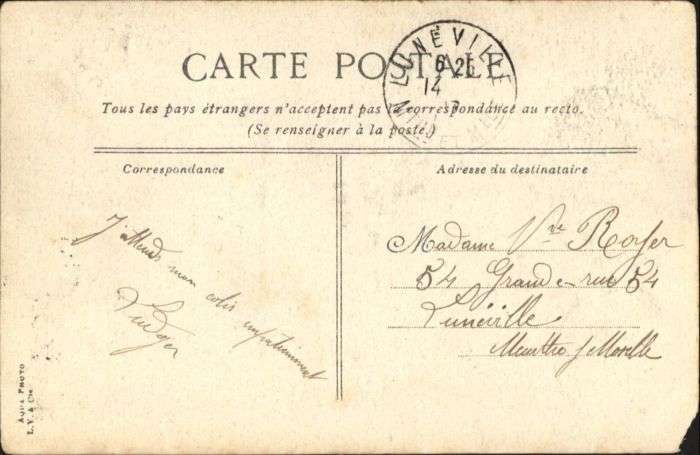 CARTE POSTALE
LUNÉVILLE
6 25
14
Tous les pays étrangers n'acceptent pas la correspondance au recto.
(Se renseigner à la poste.)
Correspondance
Adresse du destinataire
J'attends mon colis impatiemment
Madame Vve Royer
54 Grande rue 54
Lunéville
Meurthe & Moselle
AQUA PHOTO
L. V. & Cie